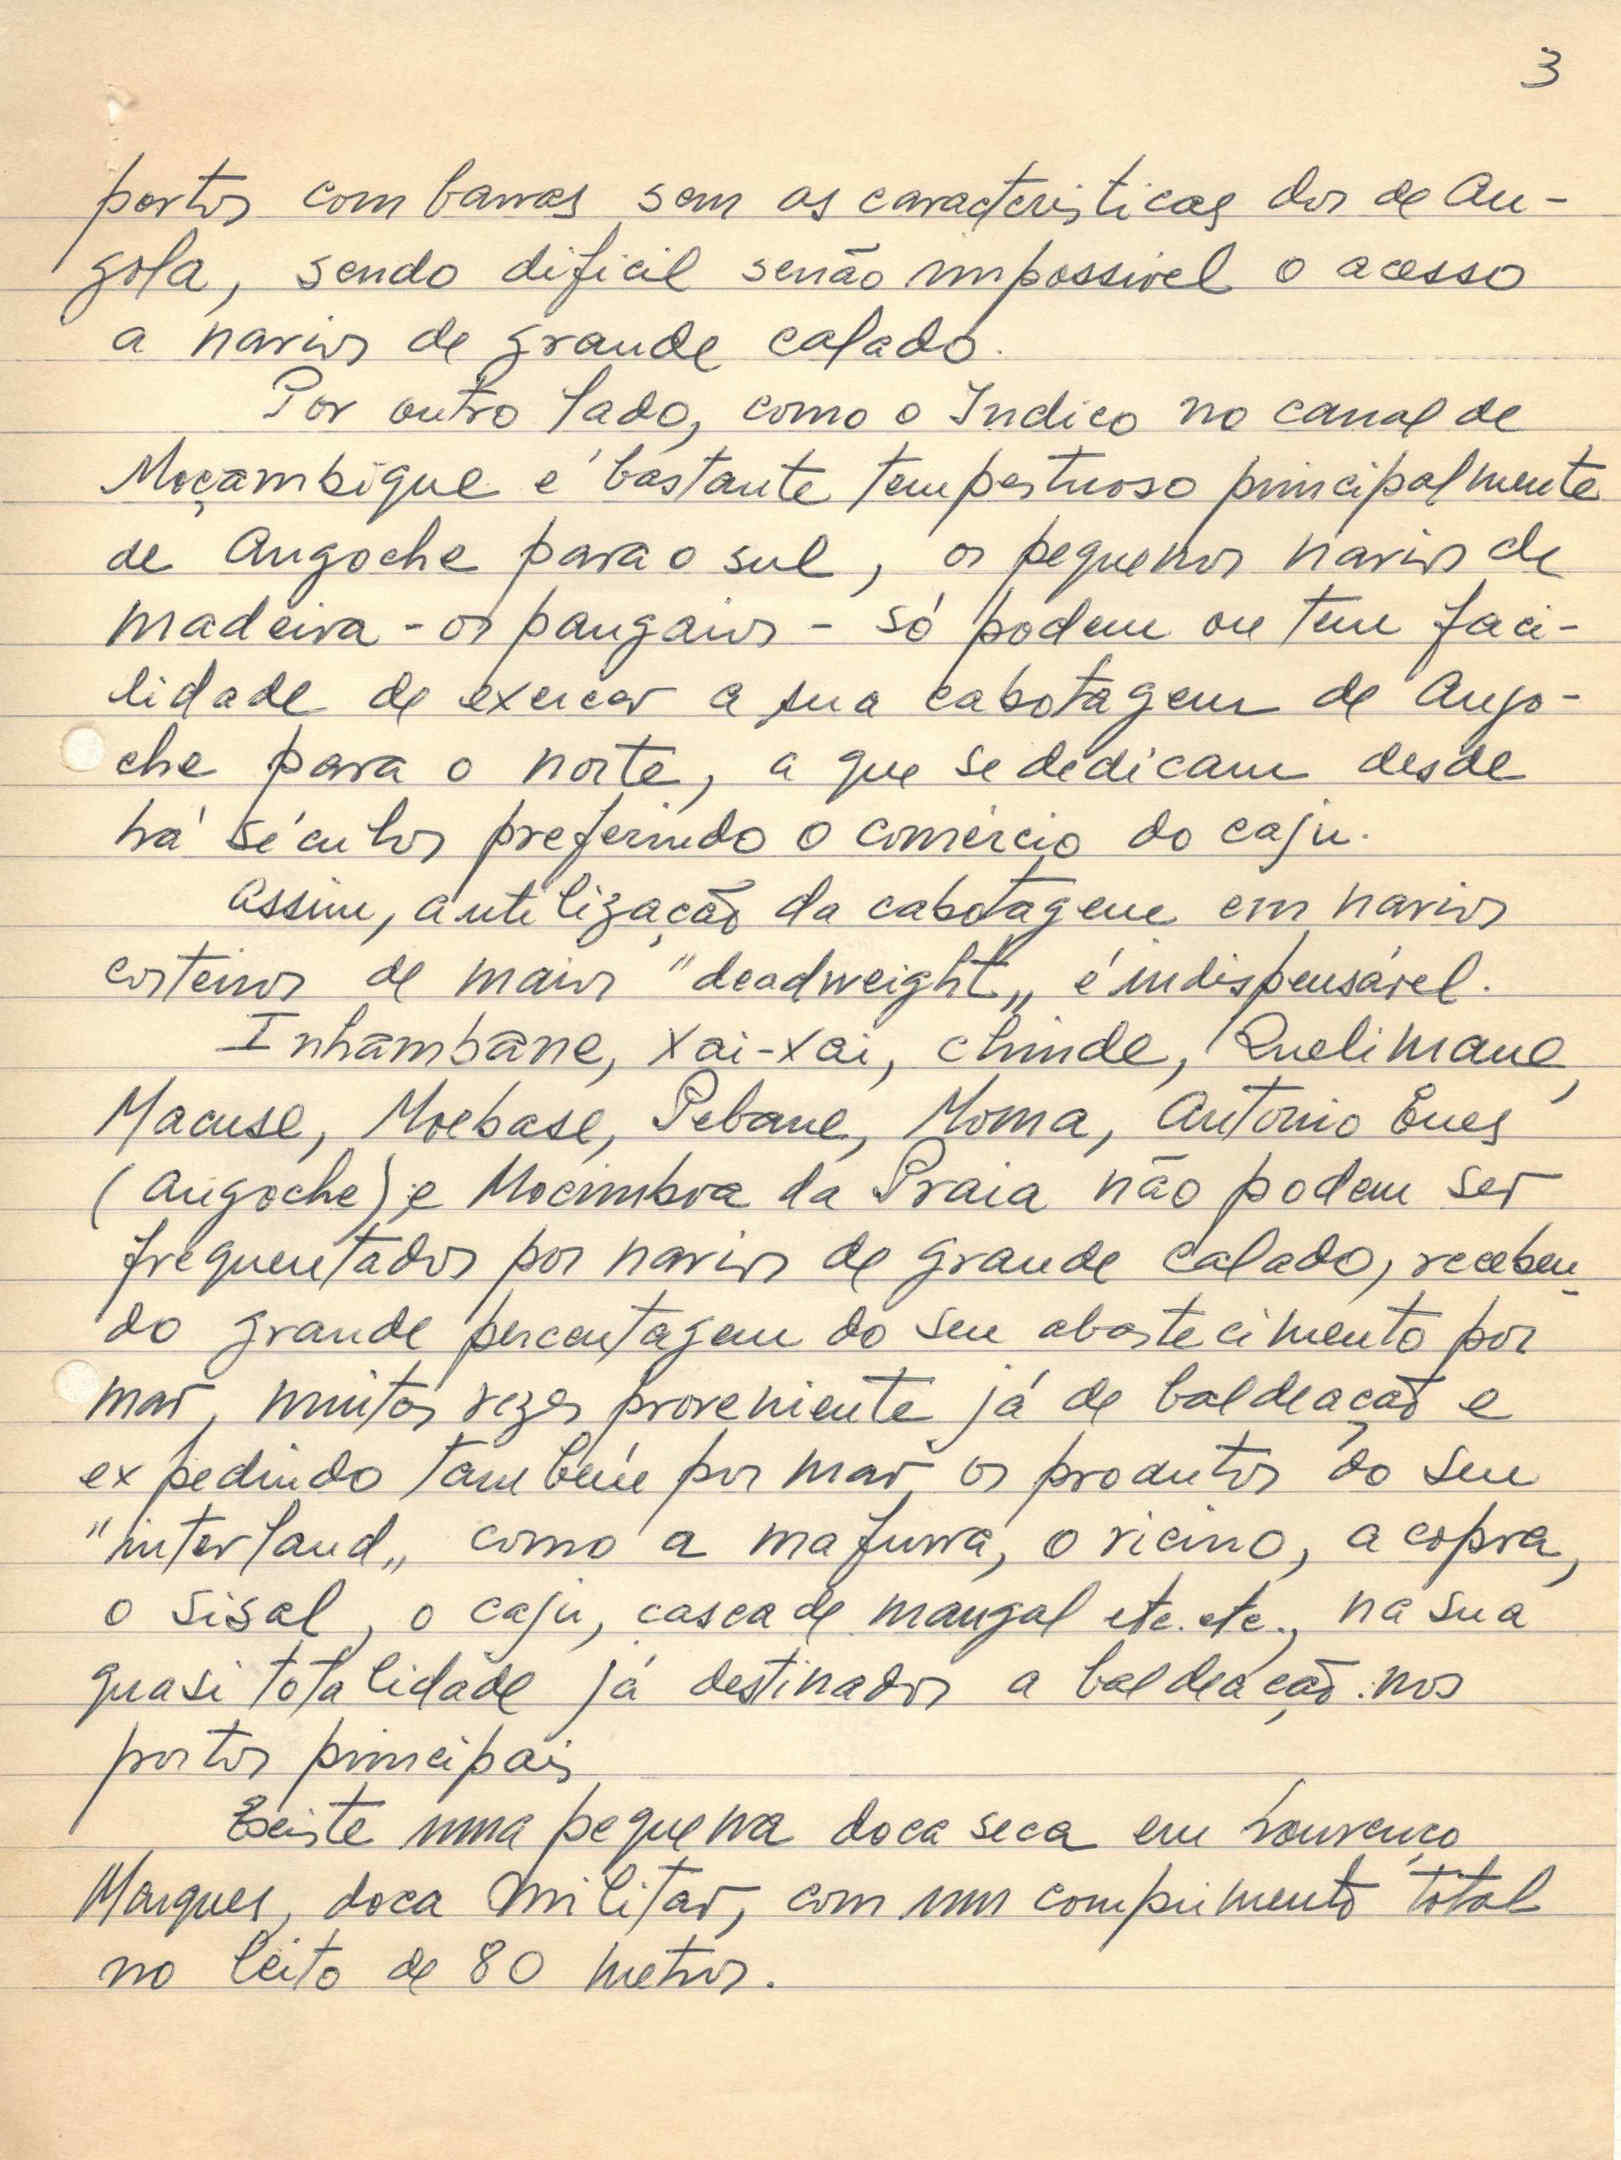 3
portos com barras sem as caracteristicas dos de An-
gola, sendo dificil senão impossivel o acesso
a navios de grande calado.
Por outro lado, como o Indico no canal de
Moçambique é bastante tempestuoso principalmente
de Angoche para o sul, os pequenos navios de
madeira - os pangaios - só podem ou tem faci-
lidade de exercer a sua cabotagem de Ango-
che para o norte, a que se dedicam desde
há séculos preferindo o comércio do caju.
Assim, a utilização da cabotagem em navios
costeiros de maior "deadweight" é indispensável.
Inhambane, Xai-Xai, Chinde, Quelimane,
Macuse, Moebase, Pebane, Moma, Antonio Enes
(Angoche) e Mocimboa da Praia não podem ser
frequentados por navios de grande calado, receben-
do grande percentagem do seu abastecimento por
mar, muitas vezes proveniente já de baldeação e
expedindo também por mar os produtos do seu
"interland" como a mafurra, o ricino, a copra,
o sisal, o caju, casca de mangal etc. etc., na sua
quasi totalidade já destinados a baldeação nos
portos principais
Existe uma pequena doca seca em Lourenço
Marques, doca militar, com um comprimento total
no leito de 80 metros.